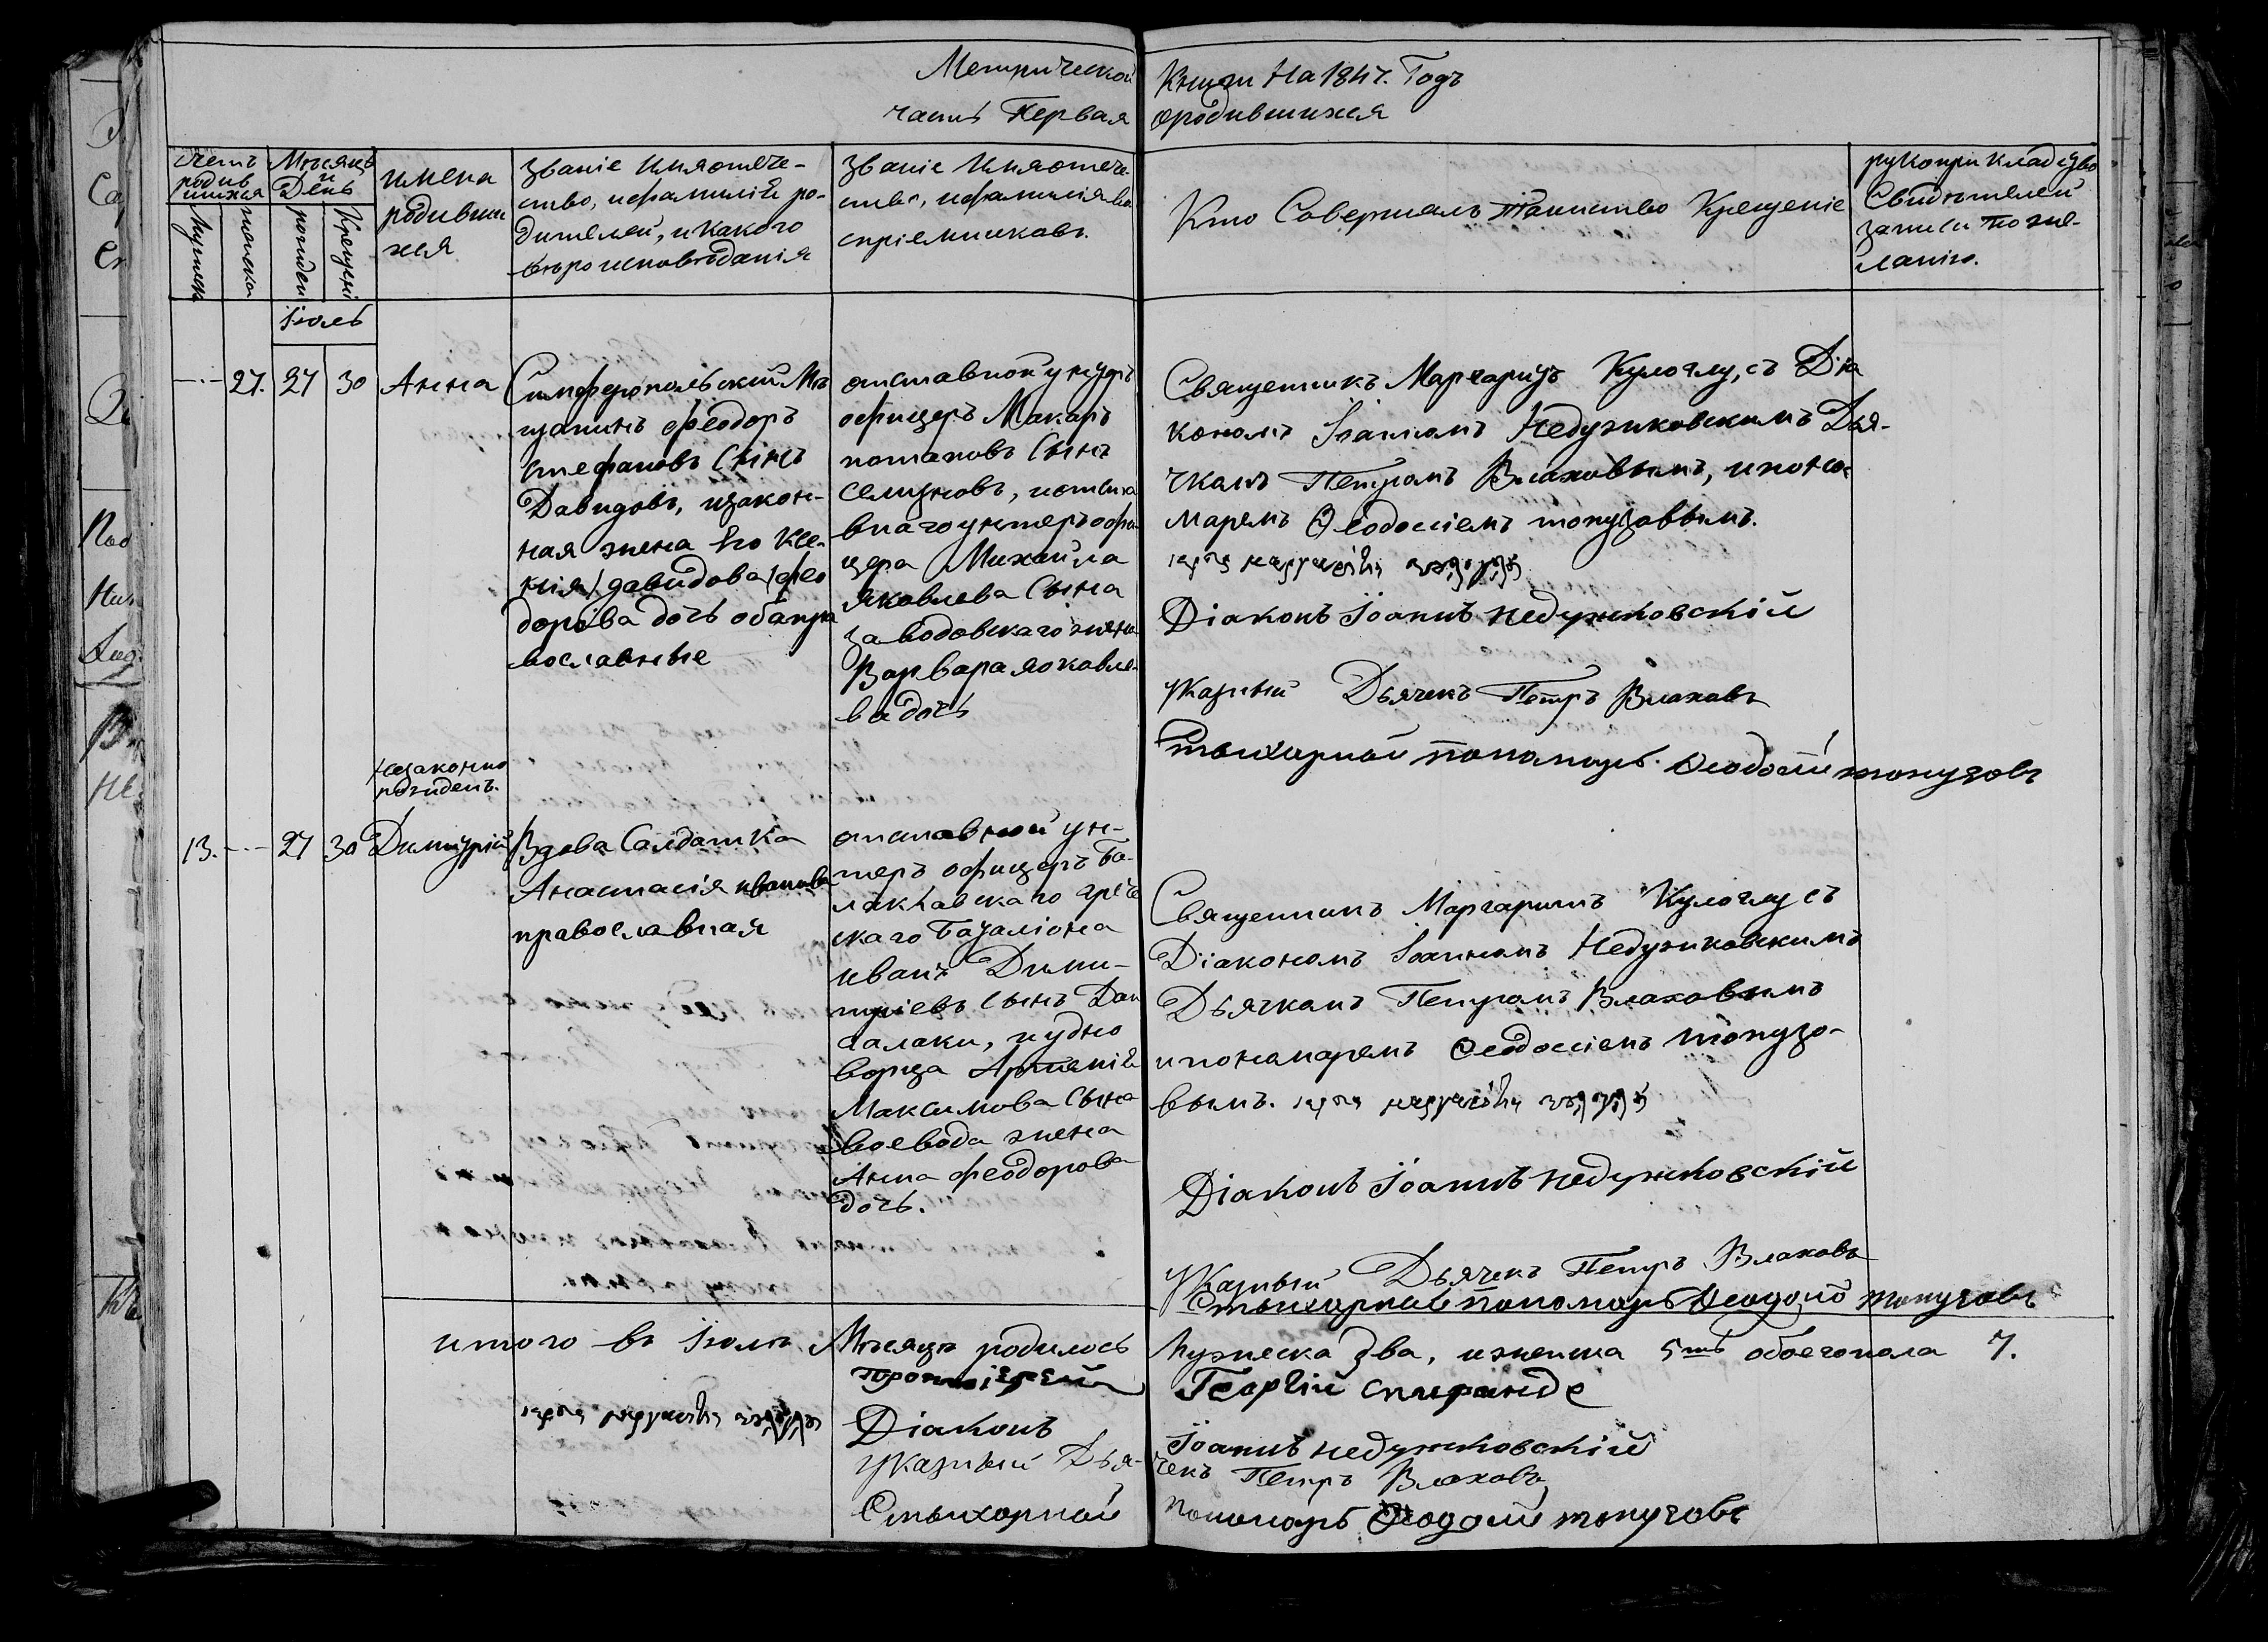 Метрической Книги На 1847. Годъ
часть Первая о родившихся
счетъ родив шихся
Мѣсяцъ и День
имена родивши хся
Званіе Имя отече-
ство, и фамилія ро-
дителей, и какого
вѣро исповѣданія
Званіе Имя отече
ство, и фамилія во
спріемниковъ.
Кто Совершалъ Таинство Крещеніе
рукоприкладство
Свидѣтелей
записи по же-
ланію.
мужеск
женска
рожден
Крещені
Іюль
27. 27 30 Анна
Симферопольский Мѣ
щанинъ Феодоръ
Стефановъ Сынъ
Давидовъ, изакон-
ная жена Его Ксе-
нія давидова фео
дорова дочь оба пра
вославные
отставной унтеръ
офицеръ Макаръ
потаповъ Сынъ
и отста
внаго унтеръ офи
цера Михаила
Яковлева Сына
Заводовскаго жена
Варвара яковле-
ва дочь
Священникъ Маргаритъ Кулоглу, съ Діа
кономъ Іоанномъ Недужиковскимъ Дья-
чкамъ Петромъ Влаховымъ, и поно
маремъ Ѳеодосіемъ топузовымъ.
Діаконъ Іоаннъ Недужковскій
Указный Дьячекъ Петръ Влаховъ
Стыхарной пономарь Ѳеодосій топузовъ
Незаконно
рожденъ.
13. 27 30 Димитрій
Вдова Салдатка
Анастасія иванова
православная
отставной ун-
теръ офицеръ Ба-
лаклавскаго грече
скаго Баталіона
иванъ Дими-
тріевъ Сынъ
и удво
ворца Артемія
Максимова Сына
воевода жена
Анна феодорова
дочь.
Священникъ Маргаритъ Кулоглу съ
Діакономъ Іоанномъ Недужиковскимъ
Дьячкамъ Петромъ Влаховымъ
и пономаремъ Ѳеодосіемъ топузо-
вымъ.
Діаконъ Іоаннъ Недужковскій
Указный Дьячекъ Петръ Влаховъ
Стыхарной пономарь Ѳеодосій топузовъ
итого въ Іюлѣ Мѣсяцѣ родилось Мужеска два, и женска 5ть обоего пола 7.
Протоіерей Георгій спиранде
Діаконъ Іоаннъ Недужковскій
Указный Дья- чекъ Петръ Влаховъ
Стыхарной пономарь Ѳеодосій топузовъ